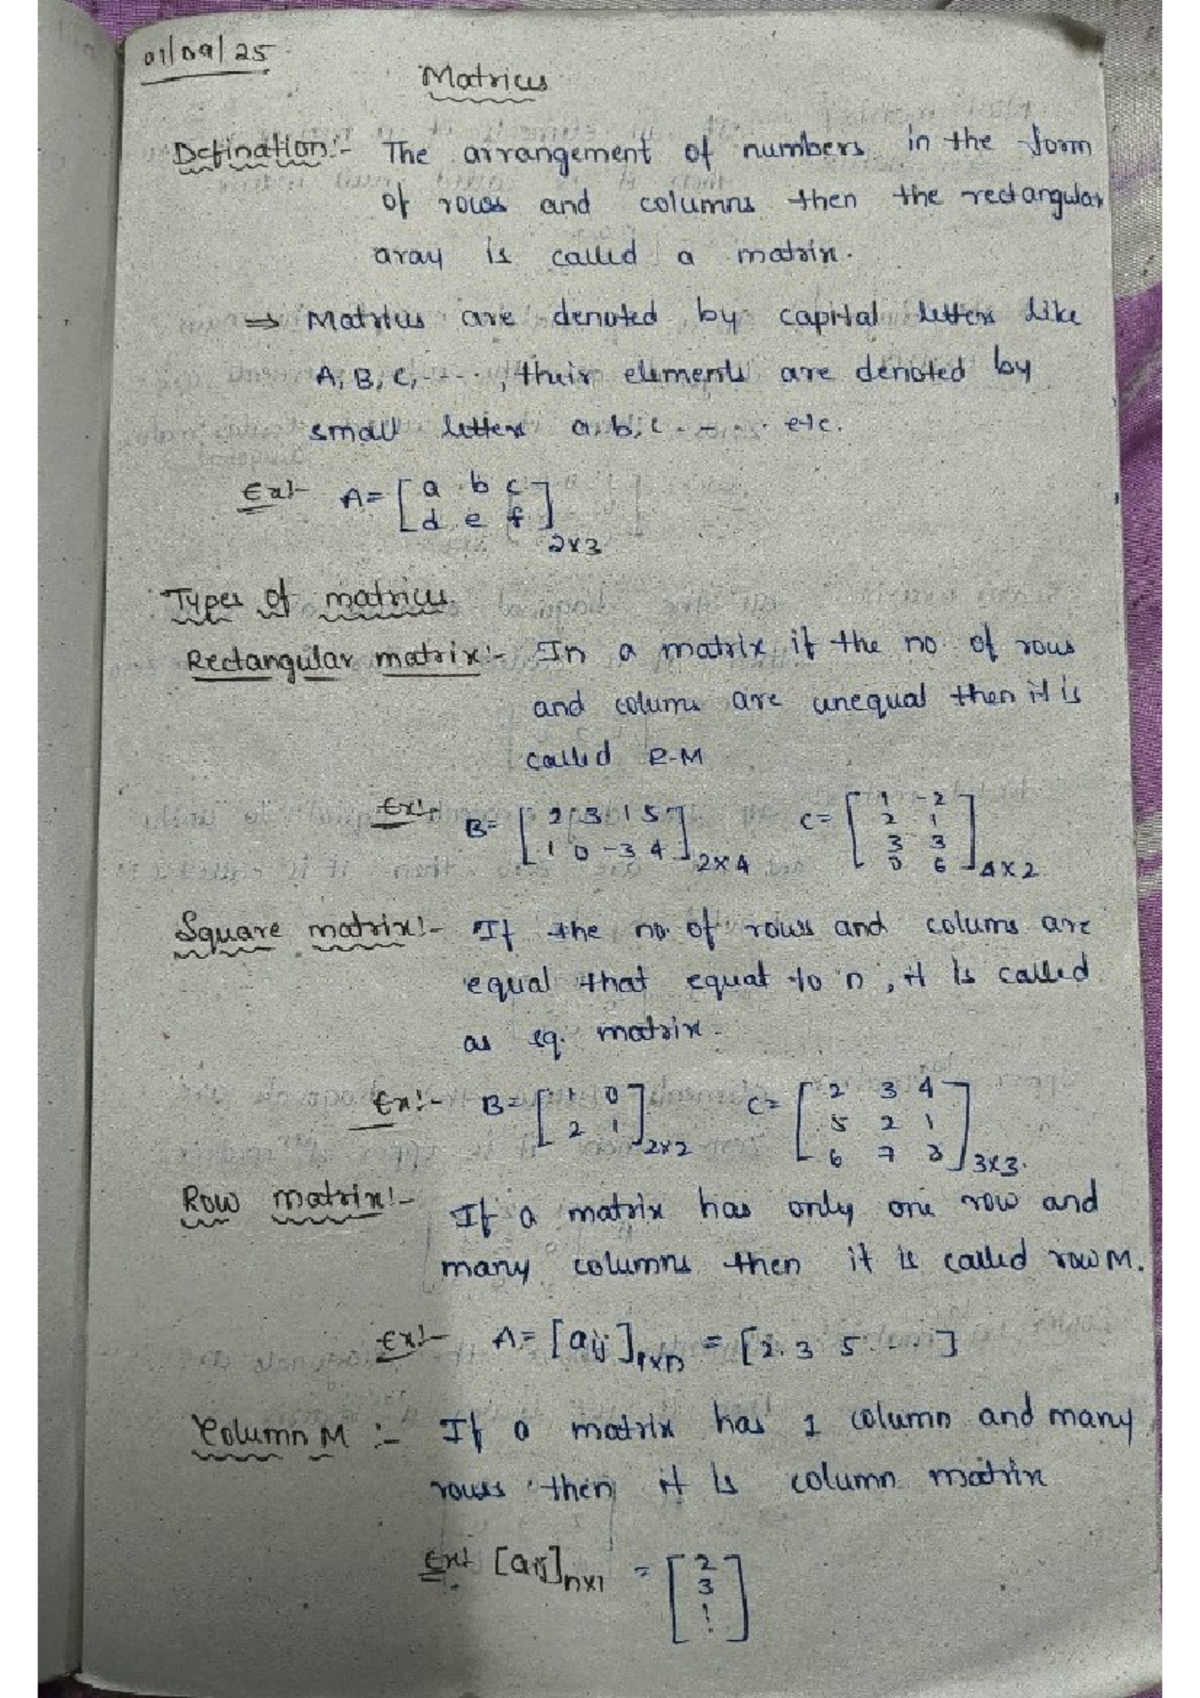 01/09/25
Matrices
Defination:- The arrangement of numbers in the form
of rows and columns then the rectangular
aray is called a matrix.
⇒ Matrices are denoted by capital letters like
A, B, C, - - - -, their elements are denoted by
small letters a, b, c - - - - etc.
Ex:- A= [a b c
d e f] 2x3
Types of matrices
Rectangular matrix:- In a matrix if the no. of rows
and colums are unequal then it is
called R-M
Ex:- B= [2 3 1 5
1 0 -3 4] 2x4
C= [1 -2
2 1
3 3
0 6] 4x2
Square matrix:- If the no. of rows and colums are
equal that equat to n, it is called
as sq. matrix.
Ex:- B= [1 0
2 1] 2x2
C= [2 3 4
5 2 1
6 7 3] 3x3.
Row matrix:- If a matrix has only one row and
many columns then it is called row M.
Ex:- A= [aij] 1xn = [2. 3 5 - - - ]
Column M :- If a matrix has 1 column and many
rows then it is column matrix
Ex:- [aij] nx1 = [2
3
⋮]